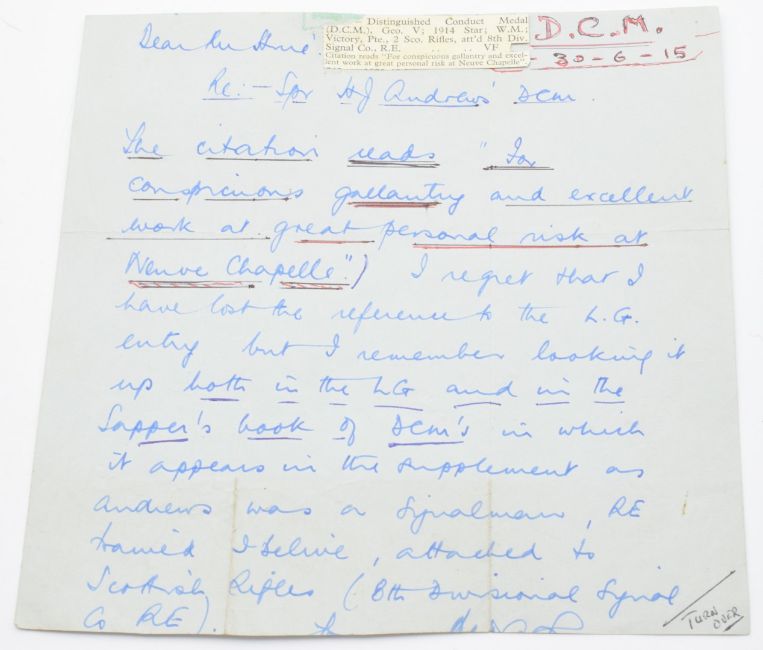 Distinguished Conduct Medal
(D.C.M.), Geo. V; 1914 Star; W.M.;
Victory, Pte., 2 Sco. Rifles, att'd 8th Div.
Signal Co., R.E. ... VF
Citation reads "For conspicuous gallantry and excel-
lent work at great personal risk at Neuve Chapelle"
D.C.M.
- 30-6-15
Dear Mr
Re:- Spr HJ Andrews' DCM.
The citation reads "For
conspicuous gallantry and excellent
work at great personal risk at
Neuve Chapelle".) I regret that I
have lost the reference to the L.G.
entry but I remember looking it
up both in the LG and in the
Sapper's book of DCM's in which
it appears in the supplement as
Andrews was a Signalman, RE
trained I belive, attached to
Scottish Rifles (8th Divisional Signal
Co RE).
TURN
OVER